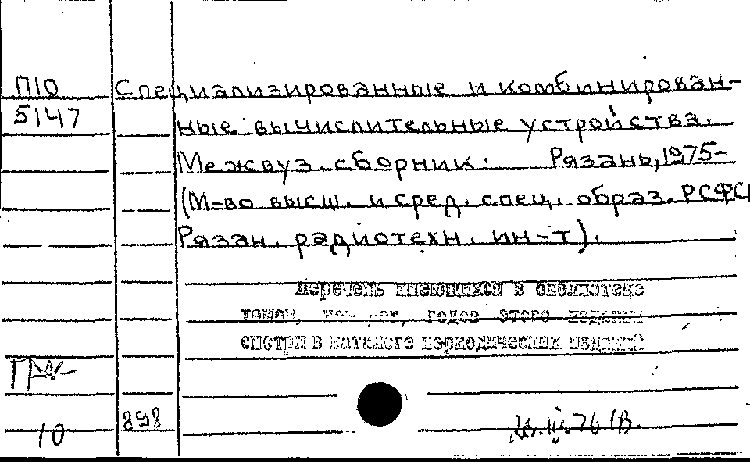 П10 Специализированные и комбинирован-
5147 ные вычислительные устройства.
Межвуз. сборник. Рязань, 1975-
(М-во высш. и сред. спец. образ. РСФСР
Рязан. радиотехн. ин-т).
Перечень имеющихся в библиотеке
томов, годов этого издания
смотри в каталоге периодических изданий
10 898